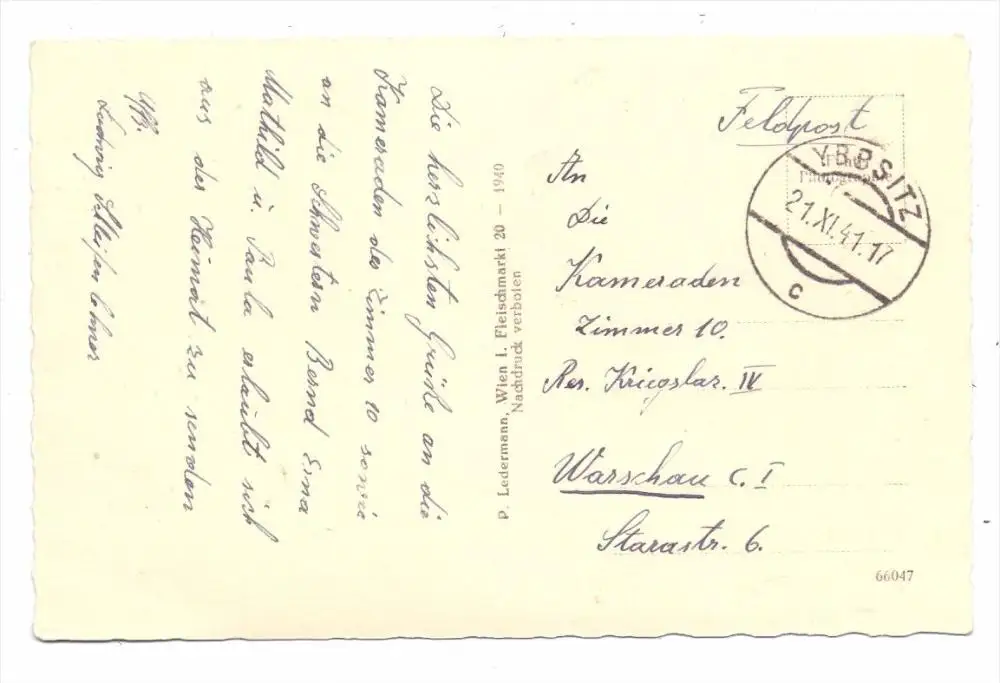 Die herzlichsten Grüße an die
Kameraden des Zimmer 10 sowie
an die Schwestern Bernd Erna
Mathild u. Paula erlaubt sich
aus der Heimat zu senden
Ludwig
P. Ledermann, Wien I. Fleischmarkt 20 — 1940
Nachdruck verboten
Feldpost
YBBSITZ
21.XI.41.17
c
Photographie
An
Die
Kameraden
Zimmer 10.
Res. Kriegslaz. IV
Warschau C. I
Starastr. 6.
66047